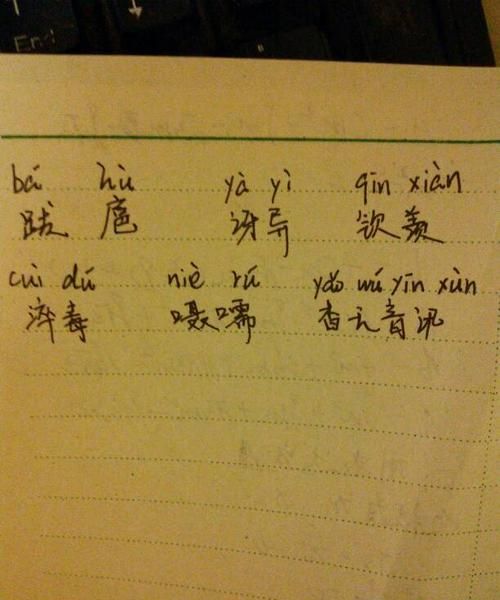 End
bá hù yà yì qīn xiàn
跋扈 讶异 钦羡
cuì dú niè rú yǎo wú yīn xùn
淬毒 嗫嚅 杳无音讯